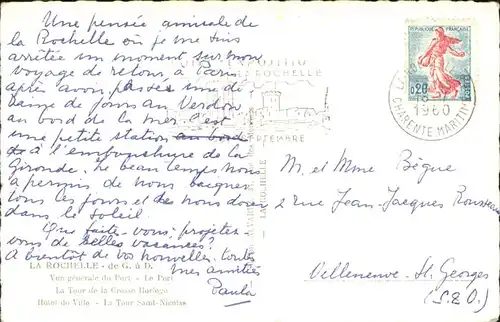 Une pensée amicale de
la Rochelle où je me suis
arrêtée un moment sur mon
voyage de retour, à Paris
après avoir passé une di-
zaine de jours au Verdon
au bord de la mer. C'est
une petite station au bord
de à l'embouchure de la
Gironde. Le beau temps nous
a permis de nous baigner
tous les jours et de nous dorer
dans le soleil.
Que faites-vous; projetez-
vous de belles vacances?
A bientôt de vos nouvelles. toutes
mes amitiés
Paula
LA ROCHELLE - de G. à D.
Vue générale du Port - Le Port
La Tour de la Grosse Horloge
Hôtel de Ville - La Tour Saint-Nicolas
LA ROCHELLE
SEPTEMBRE
REPUBLIQUE FRANÇAISE
0,20
POSTES
1960
CHARENTE MARITIME
M. et Mme Bègue
2 rue Jean-Jacques Rousseau
Villeneuve-St. Georges
(S.&O.)